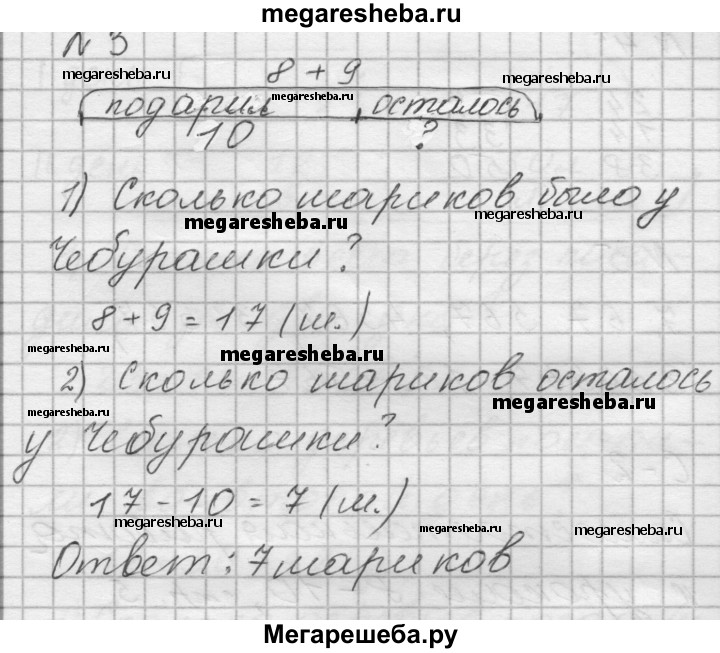 megaresheba.ru
№ 3
megaresheba.ru
8 + 9
megaresheba.ru
подарил megaresheba.ru осталось
10 ?
1) Сколько шариков было у
megaresheba.ru megaresheba.ru
Чебурашки?
8 + 9 = 17 (ш.)
megaresheba.ru megaresheba.ru
2) Сколько шариков осталось
megaresheba.ru megaresheba.ru
у Чебурашки?
17 - 10 = 7 (ш.)
megaresheba.ru megaresheba.ru megaresheba.ru
Ответ: 7 шариков
Мегарешеба.ру